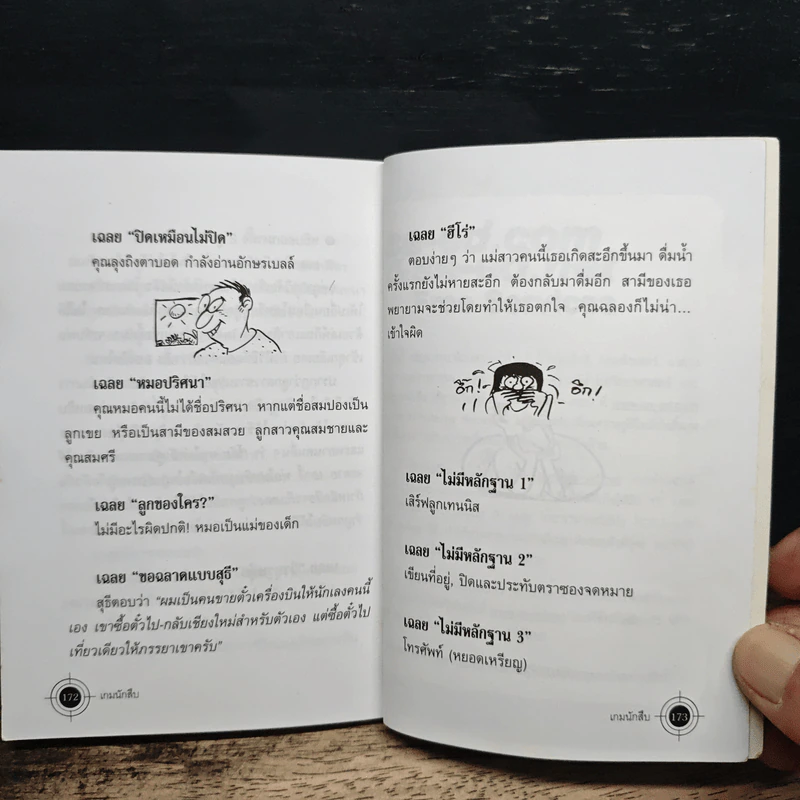 เฉลย “ปิดเหมือนไม่ปิด”
คุณลุงถิงตาบอด กำลังอ่านอักษรเบลล์
เฉลย “หมอปริศนา”
คุณหมอคนนี้ไม่ได้ชื่อปริศนา หากแต่ชื่อสมปองเป็น
ลูกเขย หรือเป็นสามีของสมสวย ลูกสาวคุณสมชายและ
คุณสมศรี
เฉลย “ลูกของใคร?”
ไม่มีอะไรผิดปกติ! หมอเป็นแม่ของเด็ก
เฉลย “ขอฉลาดแบบสุธี”
สุธีตอบว่า “ผมเป็นคนขายตั๋วเครื่องบินให้นักเลงคนนี้
เอง เขาซื้อตั๋วไป-กลับเชียงใหม่สำหรับตัวเอง แต่ซื้อตั๋วไป
เที่ยวเดียวให้ภรรยาเขาครับ”
172 เกมนักสืบ
เฉลย “ฮีโร่”
ตอบง่ายๆ ว่า แม่สาวคนนี้เธอเกิดสะอึกขึ้นมา ดื่มน้ำ
ครั้งแรกยังไม่หายสะอึก ต้องกลับมาดื่มอีก สามีของเธอ
พยายามจะช่วยโดยทำให้เธอตกใจ คุณฉลองก็ไม่น่า...
เข้าใจผิด
อึ๊ก! อึก!
เฉลย “ไม่มีหลักฐาน 1”
เสิร์ฟลูกเทนนิส
เฉลย “ไม่มีหลักฐาน 2”
เขียนที่อยู่, ปิดและประทับตราซองจดหมาย
เฉลย “ไม่มีหลักฐาน 3”
โทรศัพท์ (หยอดเหรียญ)
เกมนักสืบ 173